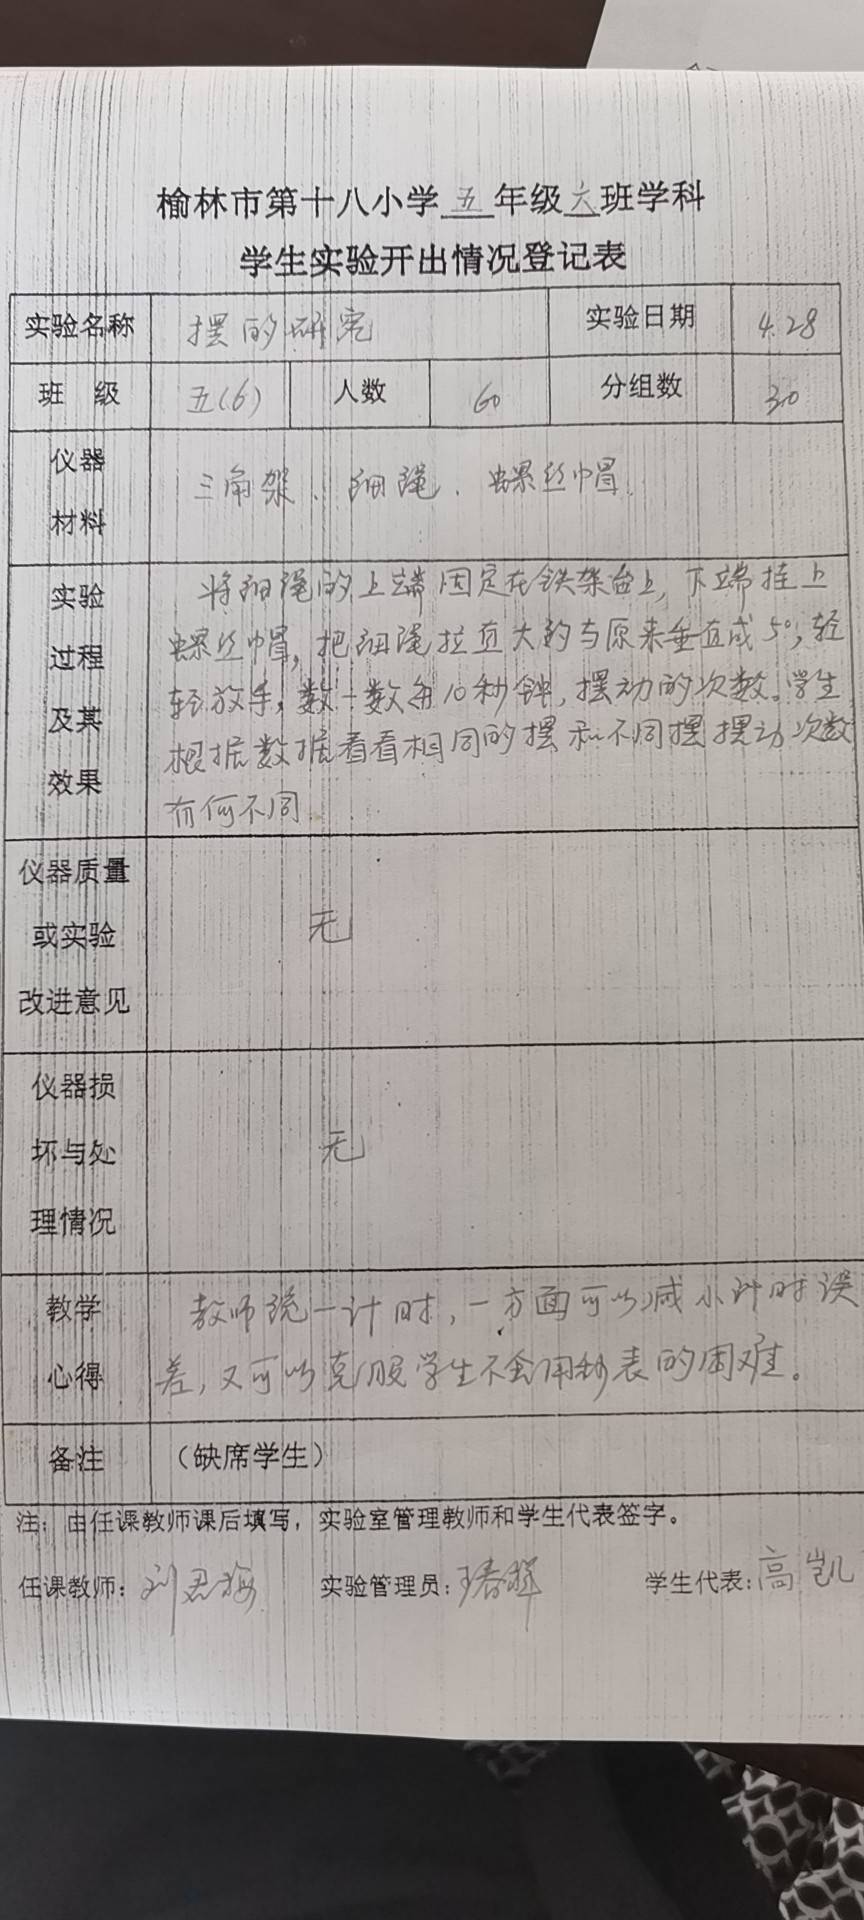 榆林市第十八小学五年级六班学科
学生实验开出情况登记表
实验名称 摆的研究 实验日期 4.28
班 级 五(6) 人数 60 分组数 30
仪器
材料
三角架、细绳、螺丝帽.
实验
过程
及其
效果
将细绳的上端固定在铁架台上,下端挂上
螺丝帽,把细绳拉直大约与原来垂直成5°,轻
轻放手,数一数每10秒钟,摆动的次数。学生
根据数据看看相同的摆和不同摆摆动次数
有何不同.
仪器质量
或实验
改进意见
无
仪器损
坏与处
理情况
无
教学
心得
教师统一计时,一方面可以减小计时误
差,又可以克服学生不会用秒表的困难。
备注 （缺席学生）
注：由任课教师课后填写，实验室管理教师和学生代表签字。
任课教师: 刘 实验管理员: 学生代表: 高凯